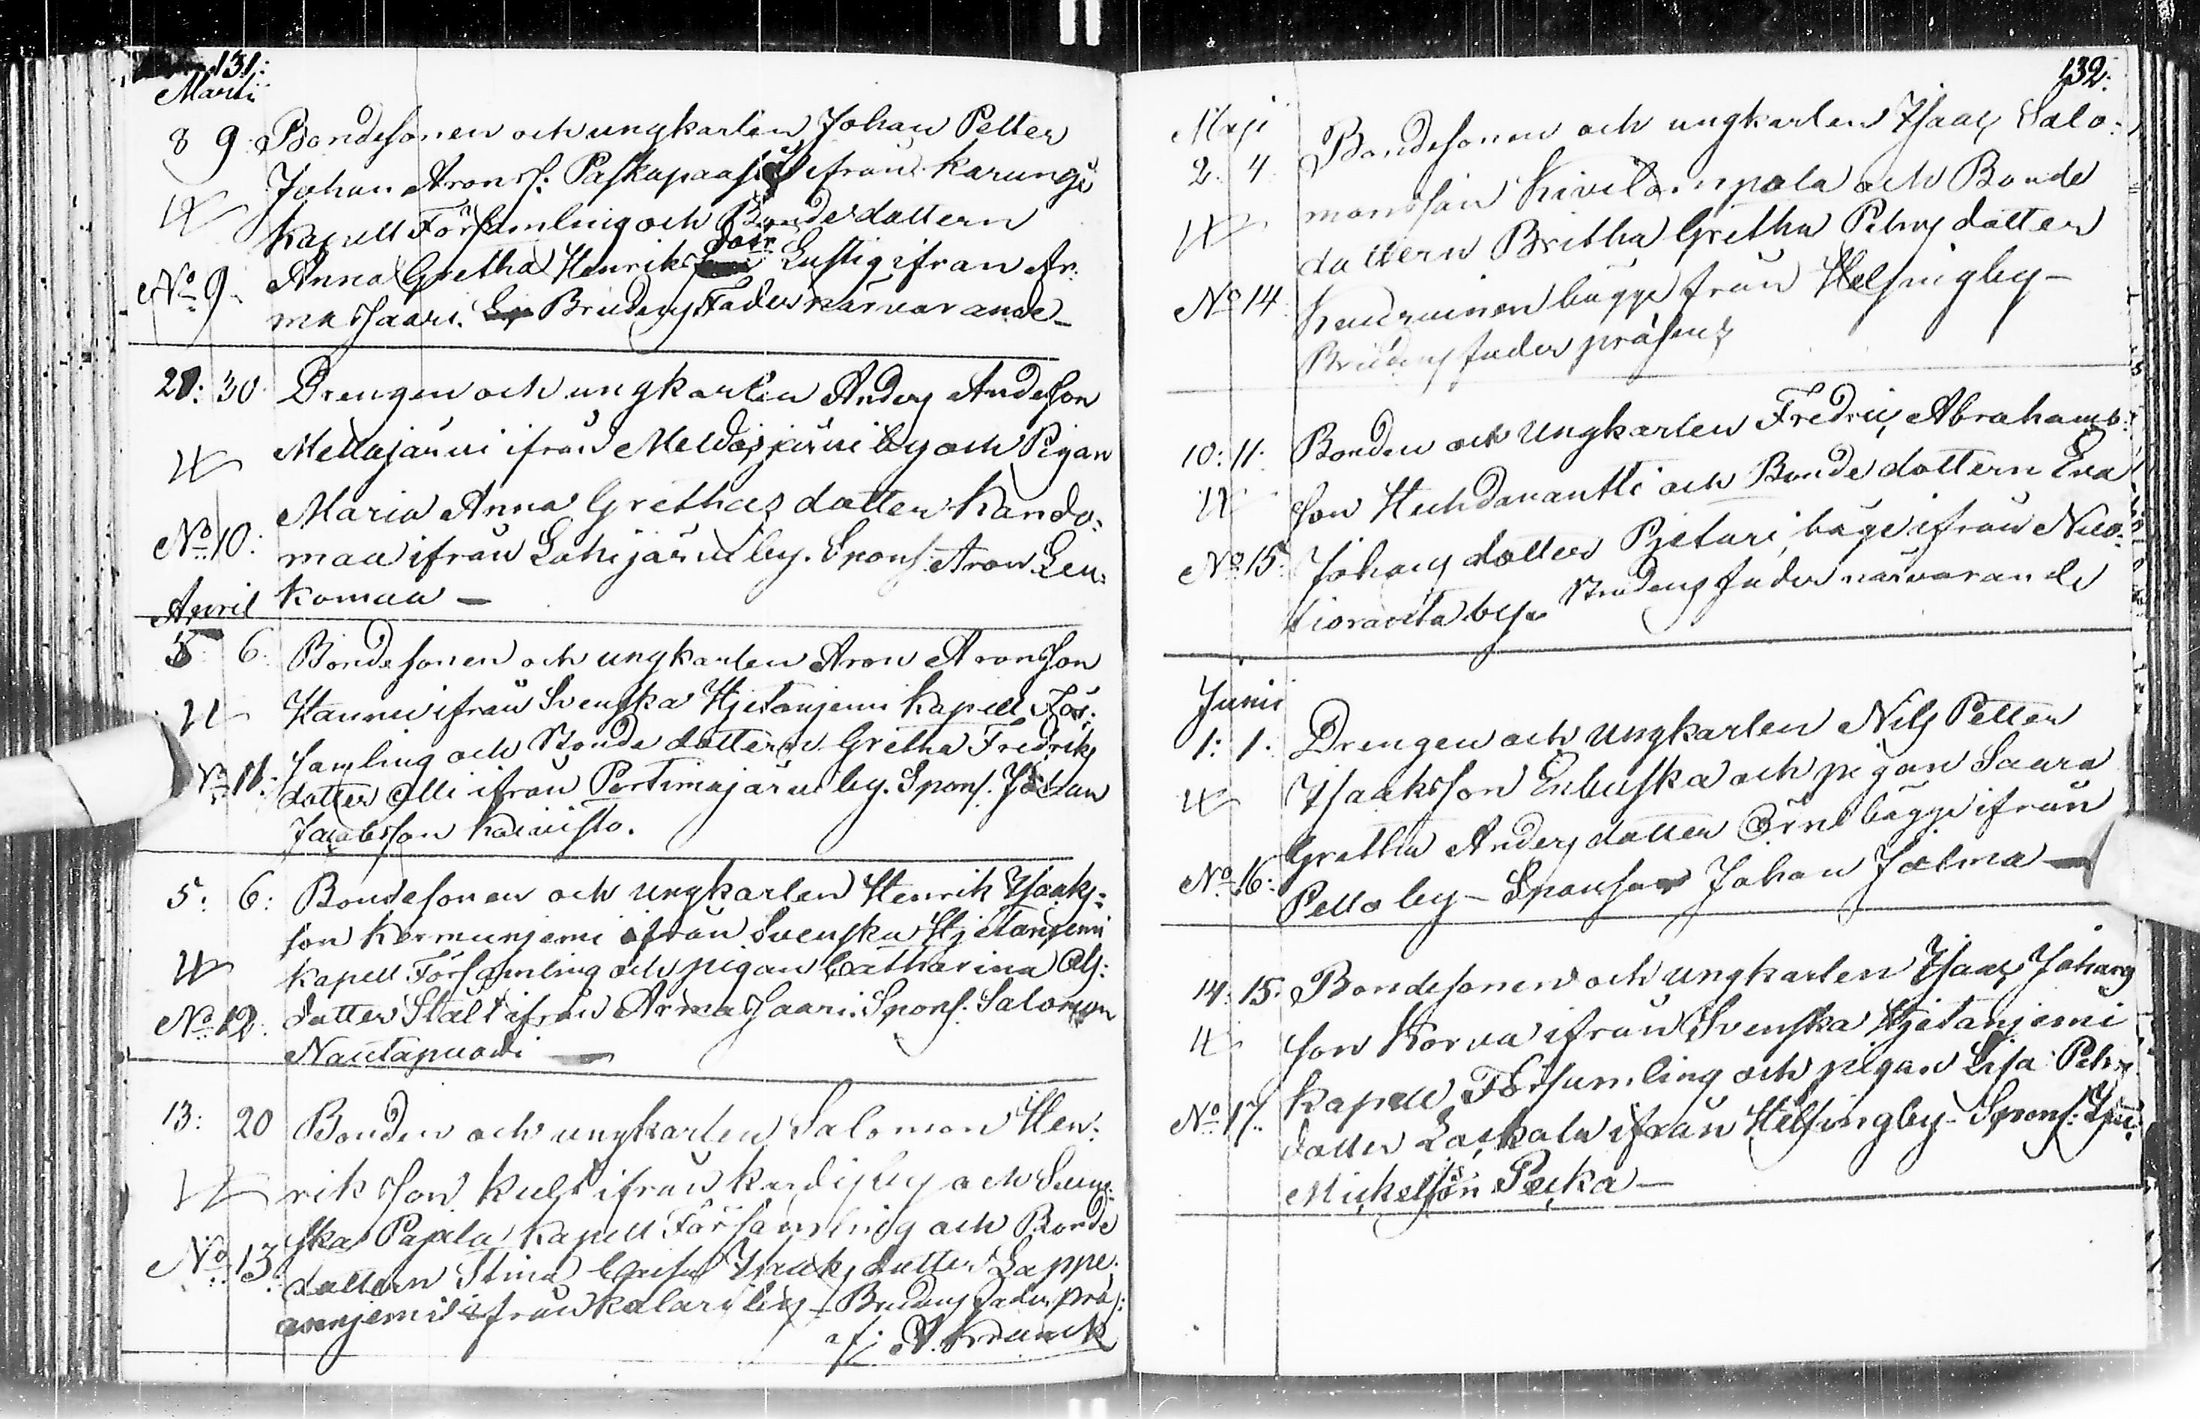 131:
Martii
8 9 Bondesonen och ungkarlen Johan Petter
Johan Arons: Paskapaasi ifrån Karungi
Kapell Församling och Bondedottern
dotr
No 9. Anna Gretha Henriks Lustig ifrån Ar:
massaari. Brudens Fader närvarande
28: 30 Drengen och ungkarlen Anders Andeson
Meltajärvi ifrån Meldosjärvi by och Pigan
Maria Anna Grethas dotter Kando:
No 10: maa ifrån Lohijärvi by. Spons: Aron Leu:
komaa
April
5 6 Bondesonen och ungkarlen Aron Aronsson
Hannu ifrån Svenska Hjetanjemi Kapell För:
samling och Bonde dottern Gretha Fredriks
No 11: dotter Olli ifrån Portimojärvi by. Spons. Johan
Jacobsson Koivisto.
5: 6: Bondesonen och ungkarlen Henrik Isaaks:
son Kermunjemi ifrån Svenska Hjetanjemi
Kapell Församling och pigan Catharina Ols:
No 12. dotter Stålt ifrån Armasaari. Spons: Salomon
Nautapuodi
13: 20 Bonden och ungkarlen Salomon Hen:
rik son Kult ifrån Kardis by och Sven:
ska Pajala Kapell Församling och Bonde
No 13. dottern Stina Caisa Isaaks dotter Lappe
anjemi ifrån Kolari by Brudens Fader präs:
af: A. Krunck
132:
Maji
2. 4 Bondesonen och ungkarlen Isaac Salo:
monsson Kivilompola och Bonde
dottern Britha Gretha Pehrs dotter
No 14 Keuruinen bägge från Helsingby
Brudens fader präsens
10: 11: Bonden och Ungkarlen Fredric Abrahams:
son Huhdanantti och Bonde dottern Eva
No 15: Johans dotter Pjetari, bäge ifrån Nuo:
tioranta by. Brudens fader närvarande
Junii
1: 1: Drengen och Ungkarlen Nils Petter
Isaksson Erbuska och pigan Saara
Gretha Anders dotter Örn bägge ifrån
No 16: Pello by - Sponsor Johan Jolma
14: 15. Bondesonen och ungkarlen Isaac Johans
son Korva ifrån Svenska Hjetanjemi
Kapell Församling och pigan Lisa Pehrs
No 17. dotter Laskala ifrån Helsingby - Spons:
Mickelson Pecka